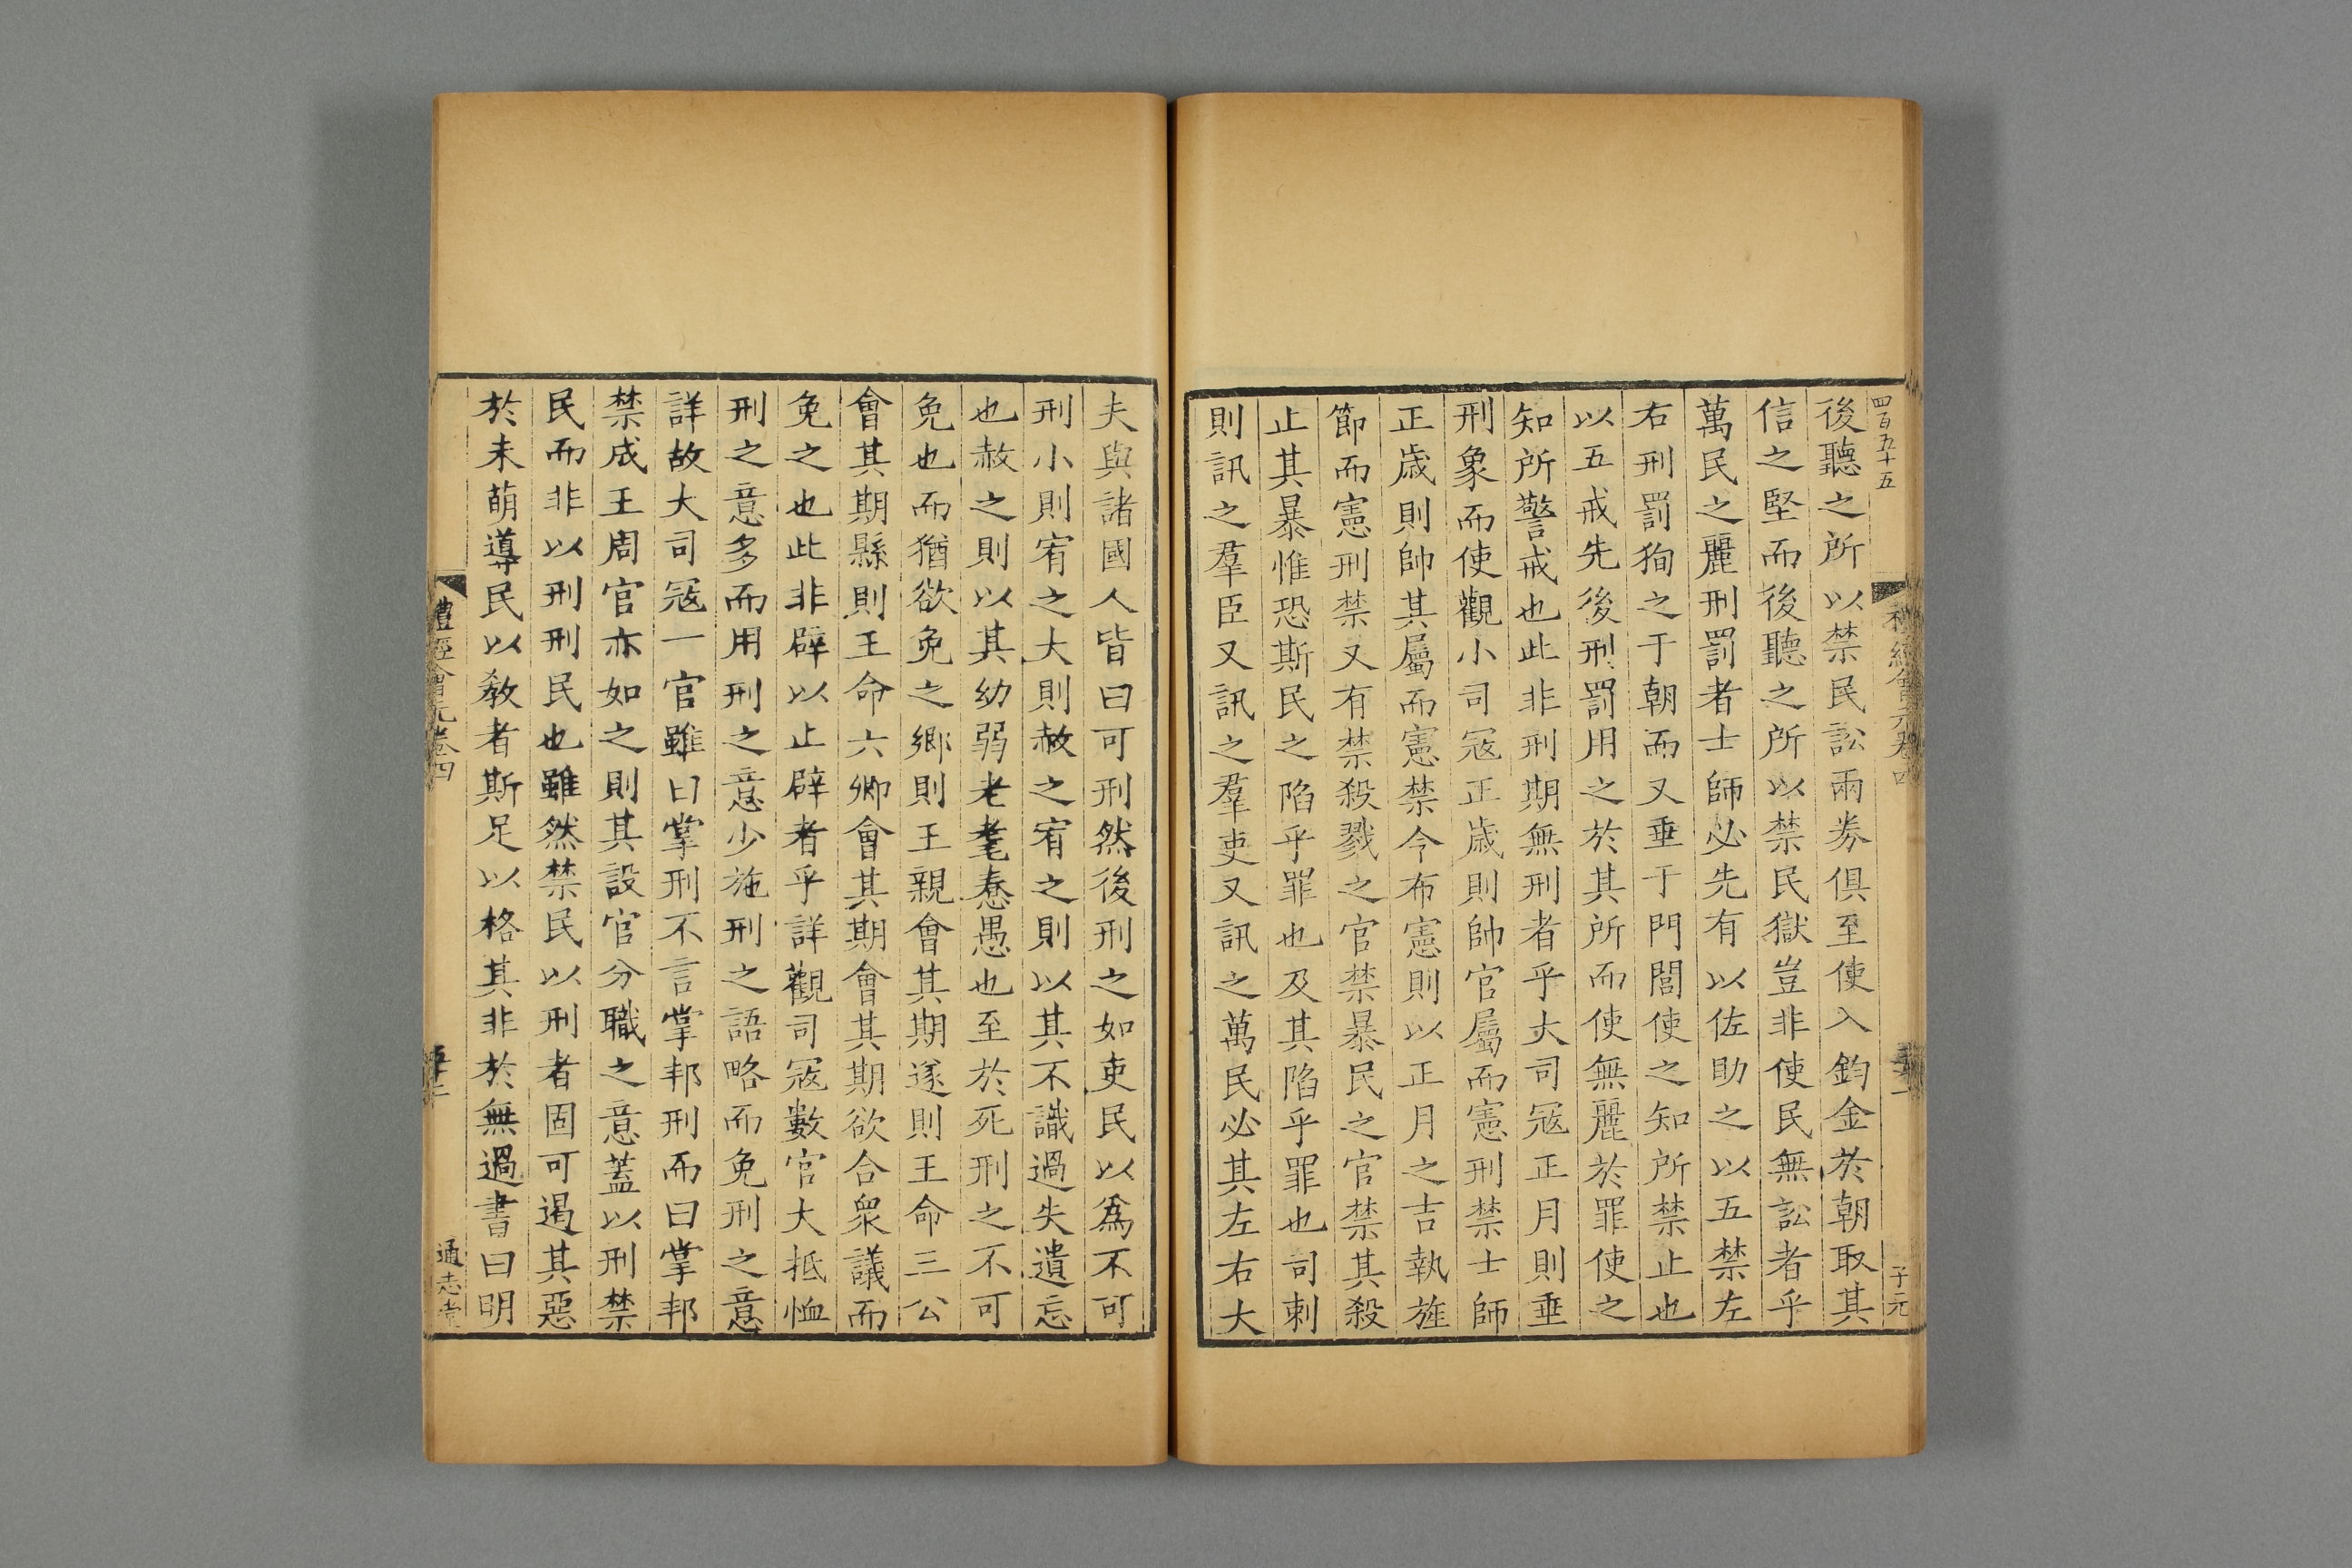 四百五十五
子元
後聽之所以禁民訟兩券俱至使入鈞金於朝取其
信之堅而後聽之所以禁民獄豈非使民無訟者乎
萬民之麗刑罰者士師必先有以佐助之以五禁左
右刑罰狥之于朝而又垂于門閭使之知所禁止也
以五戒先後刑罰用之於其所而使無麗於罪使之
知所警戒也此非刑期無刑者乎大司冦正月則垂
刑象而使觀小司冦正歳則帥官屬而憲刑禁士師
正歳則帥其屬而憲禁令布憲則以正月之吉執旌
節而憲刑禁又有禁殺戮之官禁暴民之官禁其殺
止其暴惟恐斯民之陷乎罪也及其陷乎罪也司刺
則訊之羣臣又訊之羣吏又訊之萬民必其左右大
夫與諸國人皆曰可刑然後刑之如吏民以爲不可
刑小則宥之大則赦之宥之則以其不識過失遺忘
也赦之則以其幼弱老耄惷愚也至於死刑之不可
免也而猶欲免之鄉則王親會其期遂則王命三公
會其期縣則王命六卿會其期會其期欲合衆議而
免之也此非辟以止辟者乎詳觀司冦數官大抵恤
刑之意多而用刑之意少施刑之語略而免刑之意
詳故大司冦一官雖曰掌刑不言掌邦刑而曰掌邦
禁成王周官亦如之則其設官分職之意蓋以刑禁
民而非以刑刑民也雖然禁民以刑者固可遏其惡
於未萌導民以敎者斯足以格其非於無過書曰明
禮經會元卷四
通志堂